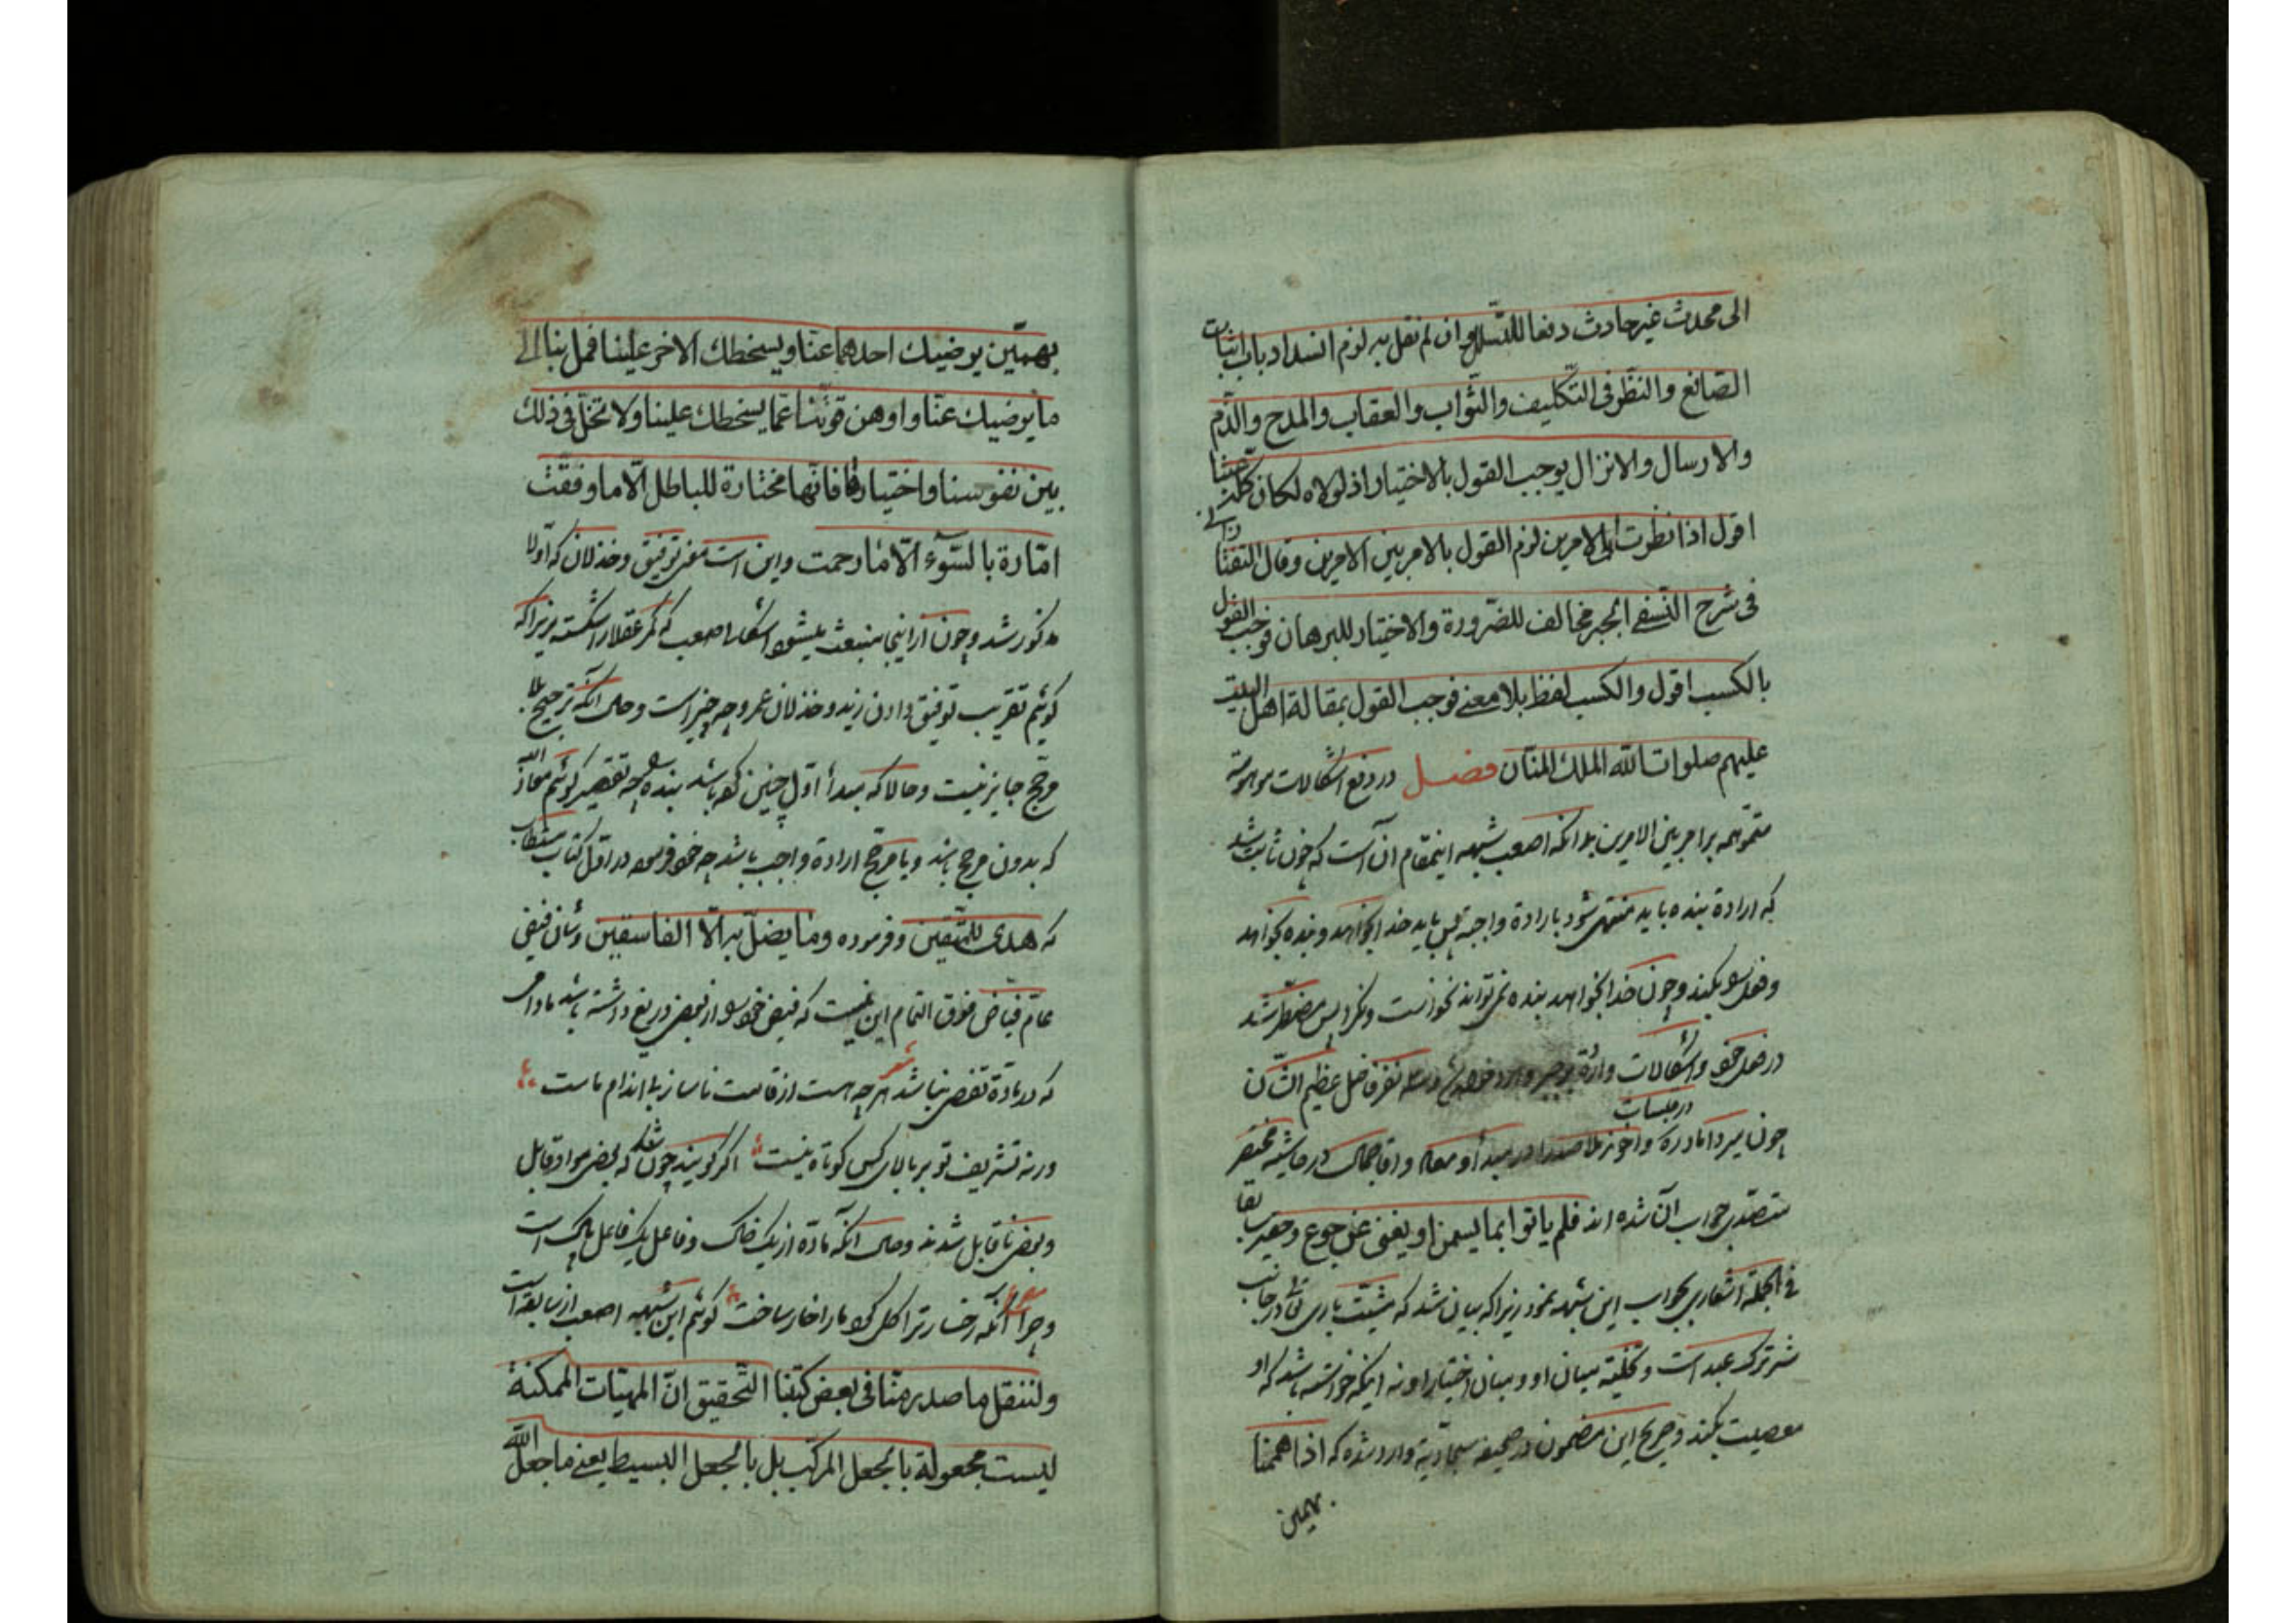 الی محدث غیر حادث دفعا للتسلسل و ان لم نقل به لزم انسداد باب اثبات
الصّانع والنظر فی التّکلیف والثّواب والعقاب والمدح والذّم
والارسال والانزال یوجب القول بالاختیار اذ لولاه لکان کلّه عبثا
اقول اذا نظرت الی الامرین لزم القول بالامر بین الامرین وقال التفتازانی
فی شرح النّسفی الجبر مخالف للضّرورة والاختیار للبرهان فوجب القول
بالکسب اقول والکسب لفظ بلا معنی فوجب القول بمقالة اهل البیت
علیهم صلوات الله الملک المنّان فصل در دفع اشکالات موهومه
متوهمه بر امر بین الامرین بدانکه اصعب شبهه اینمقام آن است که چون ثابت شد
که ارادة بنده باید منتهی شود بارادة واجب پس باید خدا بخواهد و بنده بخواهد
و فعل بکند و چون خدا بخواهد بنده نمی‌تواند نخواست و نکرد پس مضطر شد
در فعل خود و اشکالات وارده نفر فاضل عظیم الشّان
چون میرداماد ره در جلسات و آخوند ملا صدرا در مبدأ و معاد و اقا جمال در حاشیه مختصر
متصدّی جواب آن شده اند فلم یاتوا بما یسمن او یغنی عن جوع و حقیر سابقا
فی الجمله اشعاری بجواب این شبهه نمود زیرا که بیان شد که مشیّت باری تعالی در جانب
شر ترک عبد است و تخلیه میان او و میان اختیار او نه اینکه خواسته باشد که او
معصیت بکند و صریح این مضمون در صحیفه سجادیّه وارد شده که اذا هممنا
بهمین
بهمّین یرضیک احدهما عنّا ویسخطک الاخر علینا فمل بنا الی
ما یرضیک عنّا و اوهن قوّتنا عمّا یسخطک علینا ولا تخلّ فی ذلک
بین نفوسنا واختیارها فانّها مختارة للباطل الّا ما وفّقت
امّارة بالسّوء الّا ما رحمت و این است معنی توفیق و خذلان که اولا
مذکور شد و چون از اینجا منبعث میشود اشکال اصعب که کمر عقلا را شکسته زیرا که
گوئیم تقریب توفیق دادن زید و خذلان عمرو چه چیز است و حال آنکه ترجیح بلا
مرجّح جایز نیست و حالا که مبدأ اوّل چنین کرده باشد بنده چه تقصیر گوئیم معاذ الله
که بدون مرجح باشد و یا مرجّح ارادة واجب باشد چه خود فرموده در اوّل کتاب مستطاب
که هدی للمتّقین و فرموده وما یضلّ به الّا الفاسقین و شان فیض
عامّ فیّاض فوق التمام این نیست که فیض خود را از بعضی دریغ داشته باشد مادامی
که در مادّة نقص نباشد شعر هر چه هست از قامت ناساز بی اندام ماست
ورنه تشریف تو بر بالای کس کوتاه نیست اگر گویند چون شد که بعضی مواد قابل
و بعضی ناقابل شدند و حال آنکه مادّه از یک خاک و فاعل یک فاعل پاک است
و چرا آنکه رخسار ترا گل کرد ما را خار ساخت گوئیم این شبهه اصعب از سابقه است
ولننقل ما صدر منّا فی بعض کتبنا التّحقیق انّ المهیّات الممکنة
لیست مجعولة بالجعل المرکّب بل بالجعل البسیط یعنی ما جعل الله